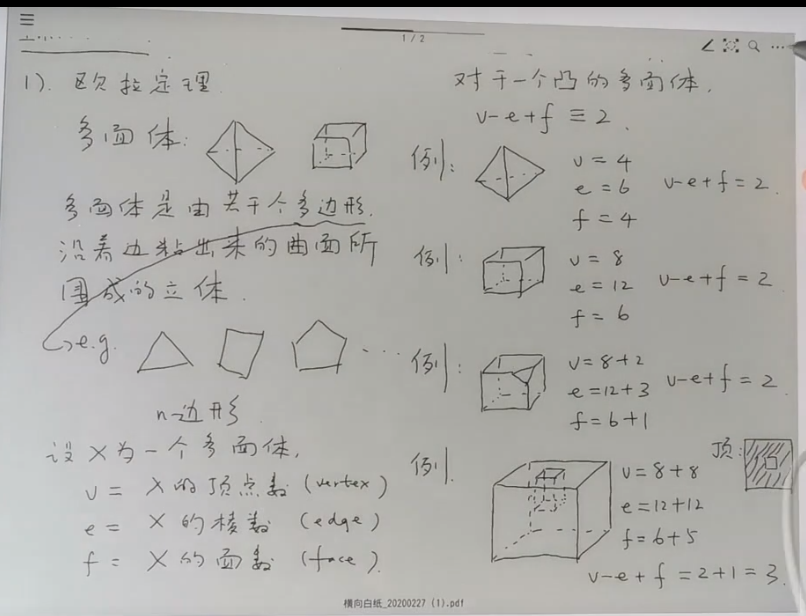 1/2
1). 欧拉定理
多面体:
多面体是由若干个多边形
沿着边粘出来的曲面所
围成的立体.
e.g. ...
n-边形
设 X 为一个多面体,
v = X 的顶点数 (vertex)
e = X 的棱数 (edge)
f = X 的面数 (face).
对于一个凸的多面体,
v-e+f ≡ 2.
例: v = 4
e = 6 v-e+f = 2.
f = 4
例: v = 8
e = 12 v-e+f = 2
f = 6
例: v = 8+2
e = 12+3 v-e+f = 2.
f = 6+1
例. 顶:
v = 8+8
e = 12+12
f = 6+5
v-e+f = 2+1 = 3.
横向白纸_20200227 (1).pdf